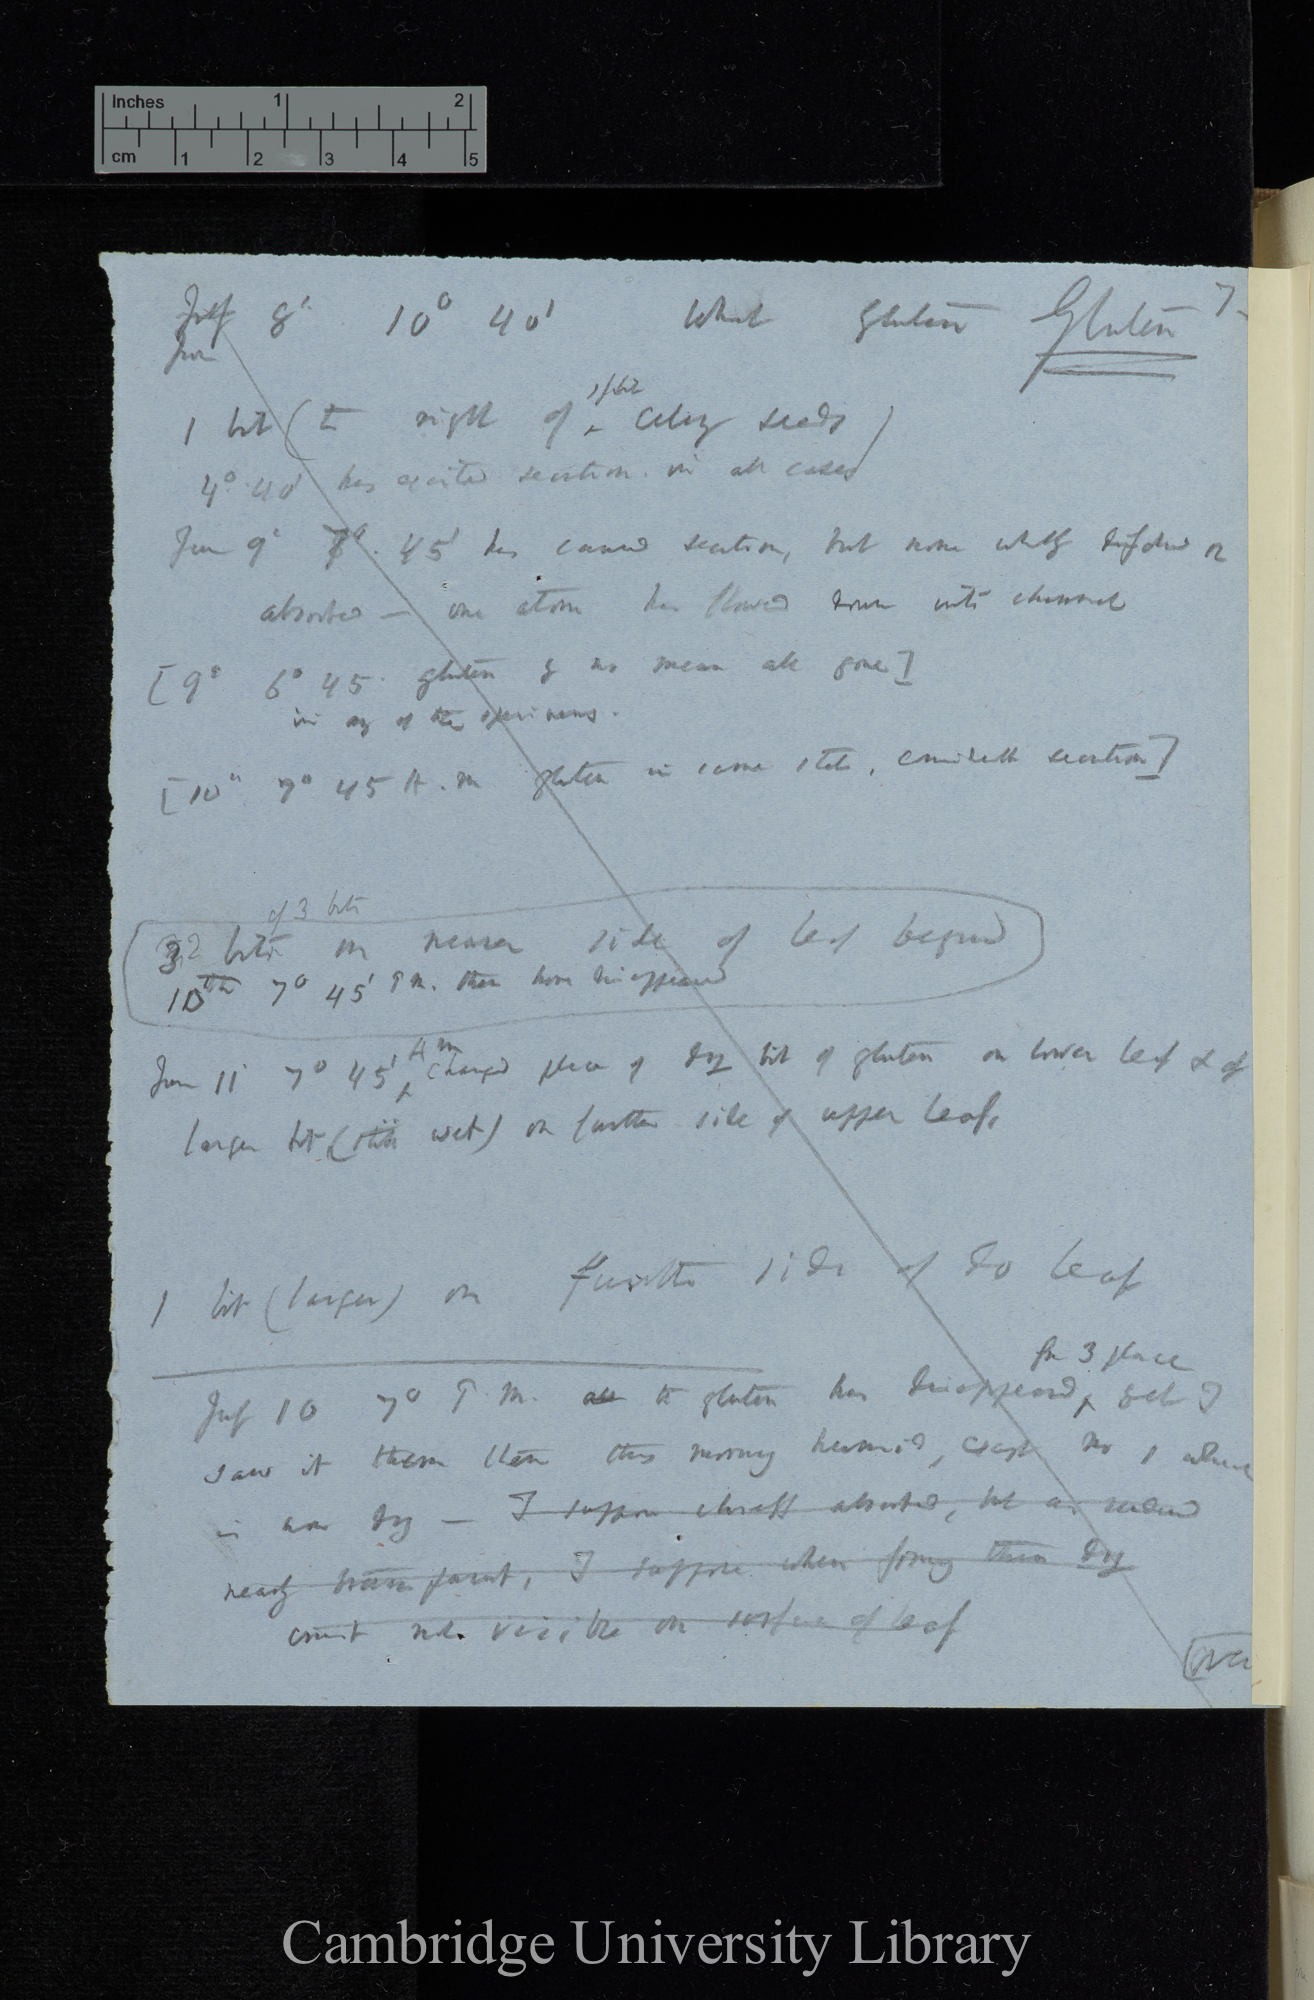 Inches 1 2
cm 1 2 3 4 5
July 8' 10° 40' Wheat Gluten Gluten 7
June
split
1 bit (to right of ^ Celery seeds)
4° 40' has excited secretion in all cases
June 9' 7°. 45' has caused secretion, but none wholly dissolved or
absorbed — one atom has flowed down into channel
[9° 6° 45 gluten by no mean all gone]
in any of the specimens.
[10" 7° 45 A.m gluten in same state, secretion]
of 3 bits
2 bits on nearer side of leaf beyond
10th 7° 45' P.m. these have disappeared
A m
June 11' 7° 45' ^ changed place of dry bit of gluten on lower leaf & of
larger bit (still wet) on further side of upper leaf.
1 bit (larger) on further side of do leaf
from 3 place
July 10 7° P.M. all the gluten has disappeared ^, yet I
saw it there this morning, except no 1 where
is now dry — I suppose absorbed, but as
nearly transparent, I suppose when thin dry
not visible on surface of leaf
(over
Cambridge University Library